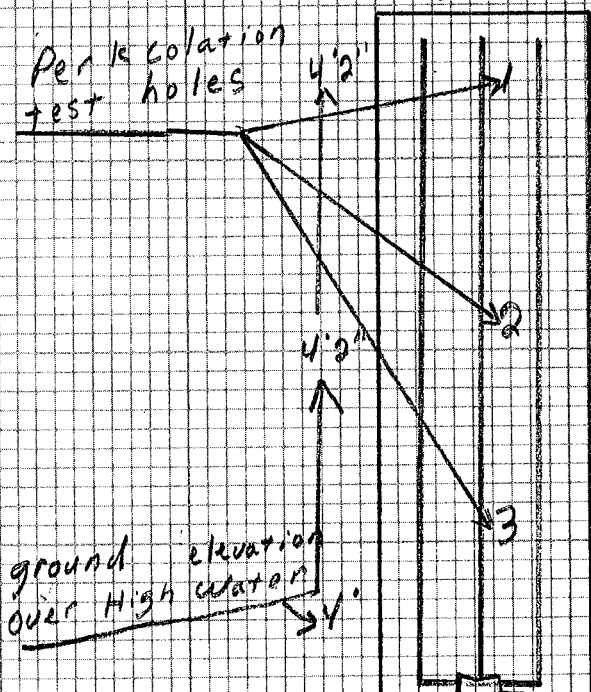 Perkcolation
test holes
4'2"
1
2
4'2"
3
ground elevation
over High water
4'